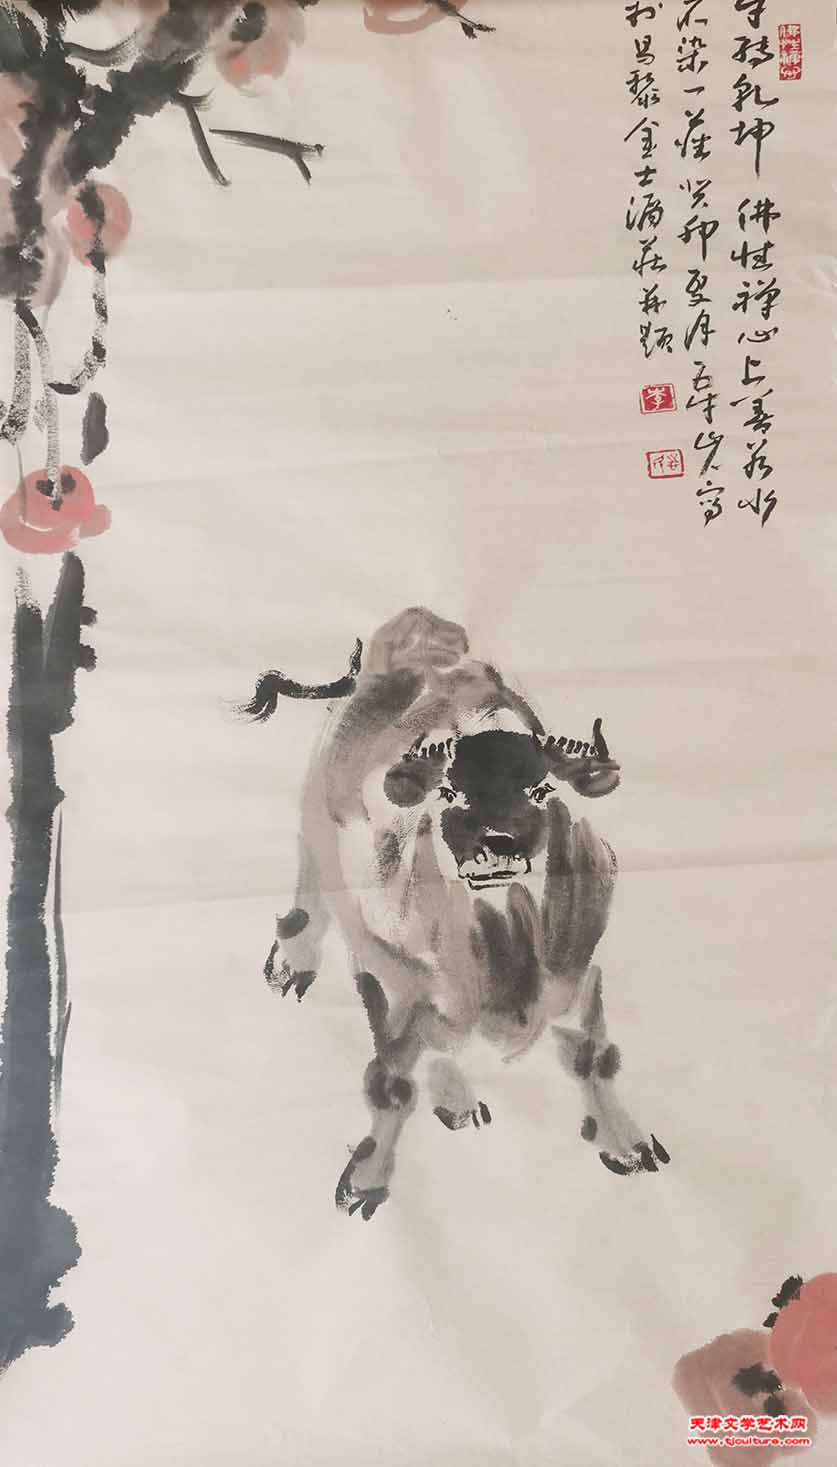 牛转乾坤 佛性禅心上善若水
不染一尘 癸卯夏月 五牛 写
於昌黎金士酒莊并题
李
天津文学艺术网
www.tjculture.com